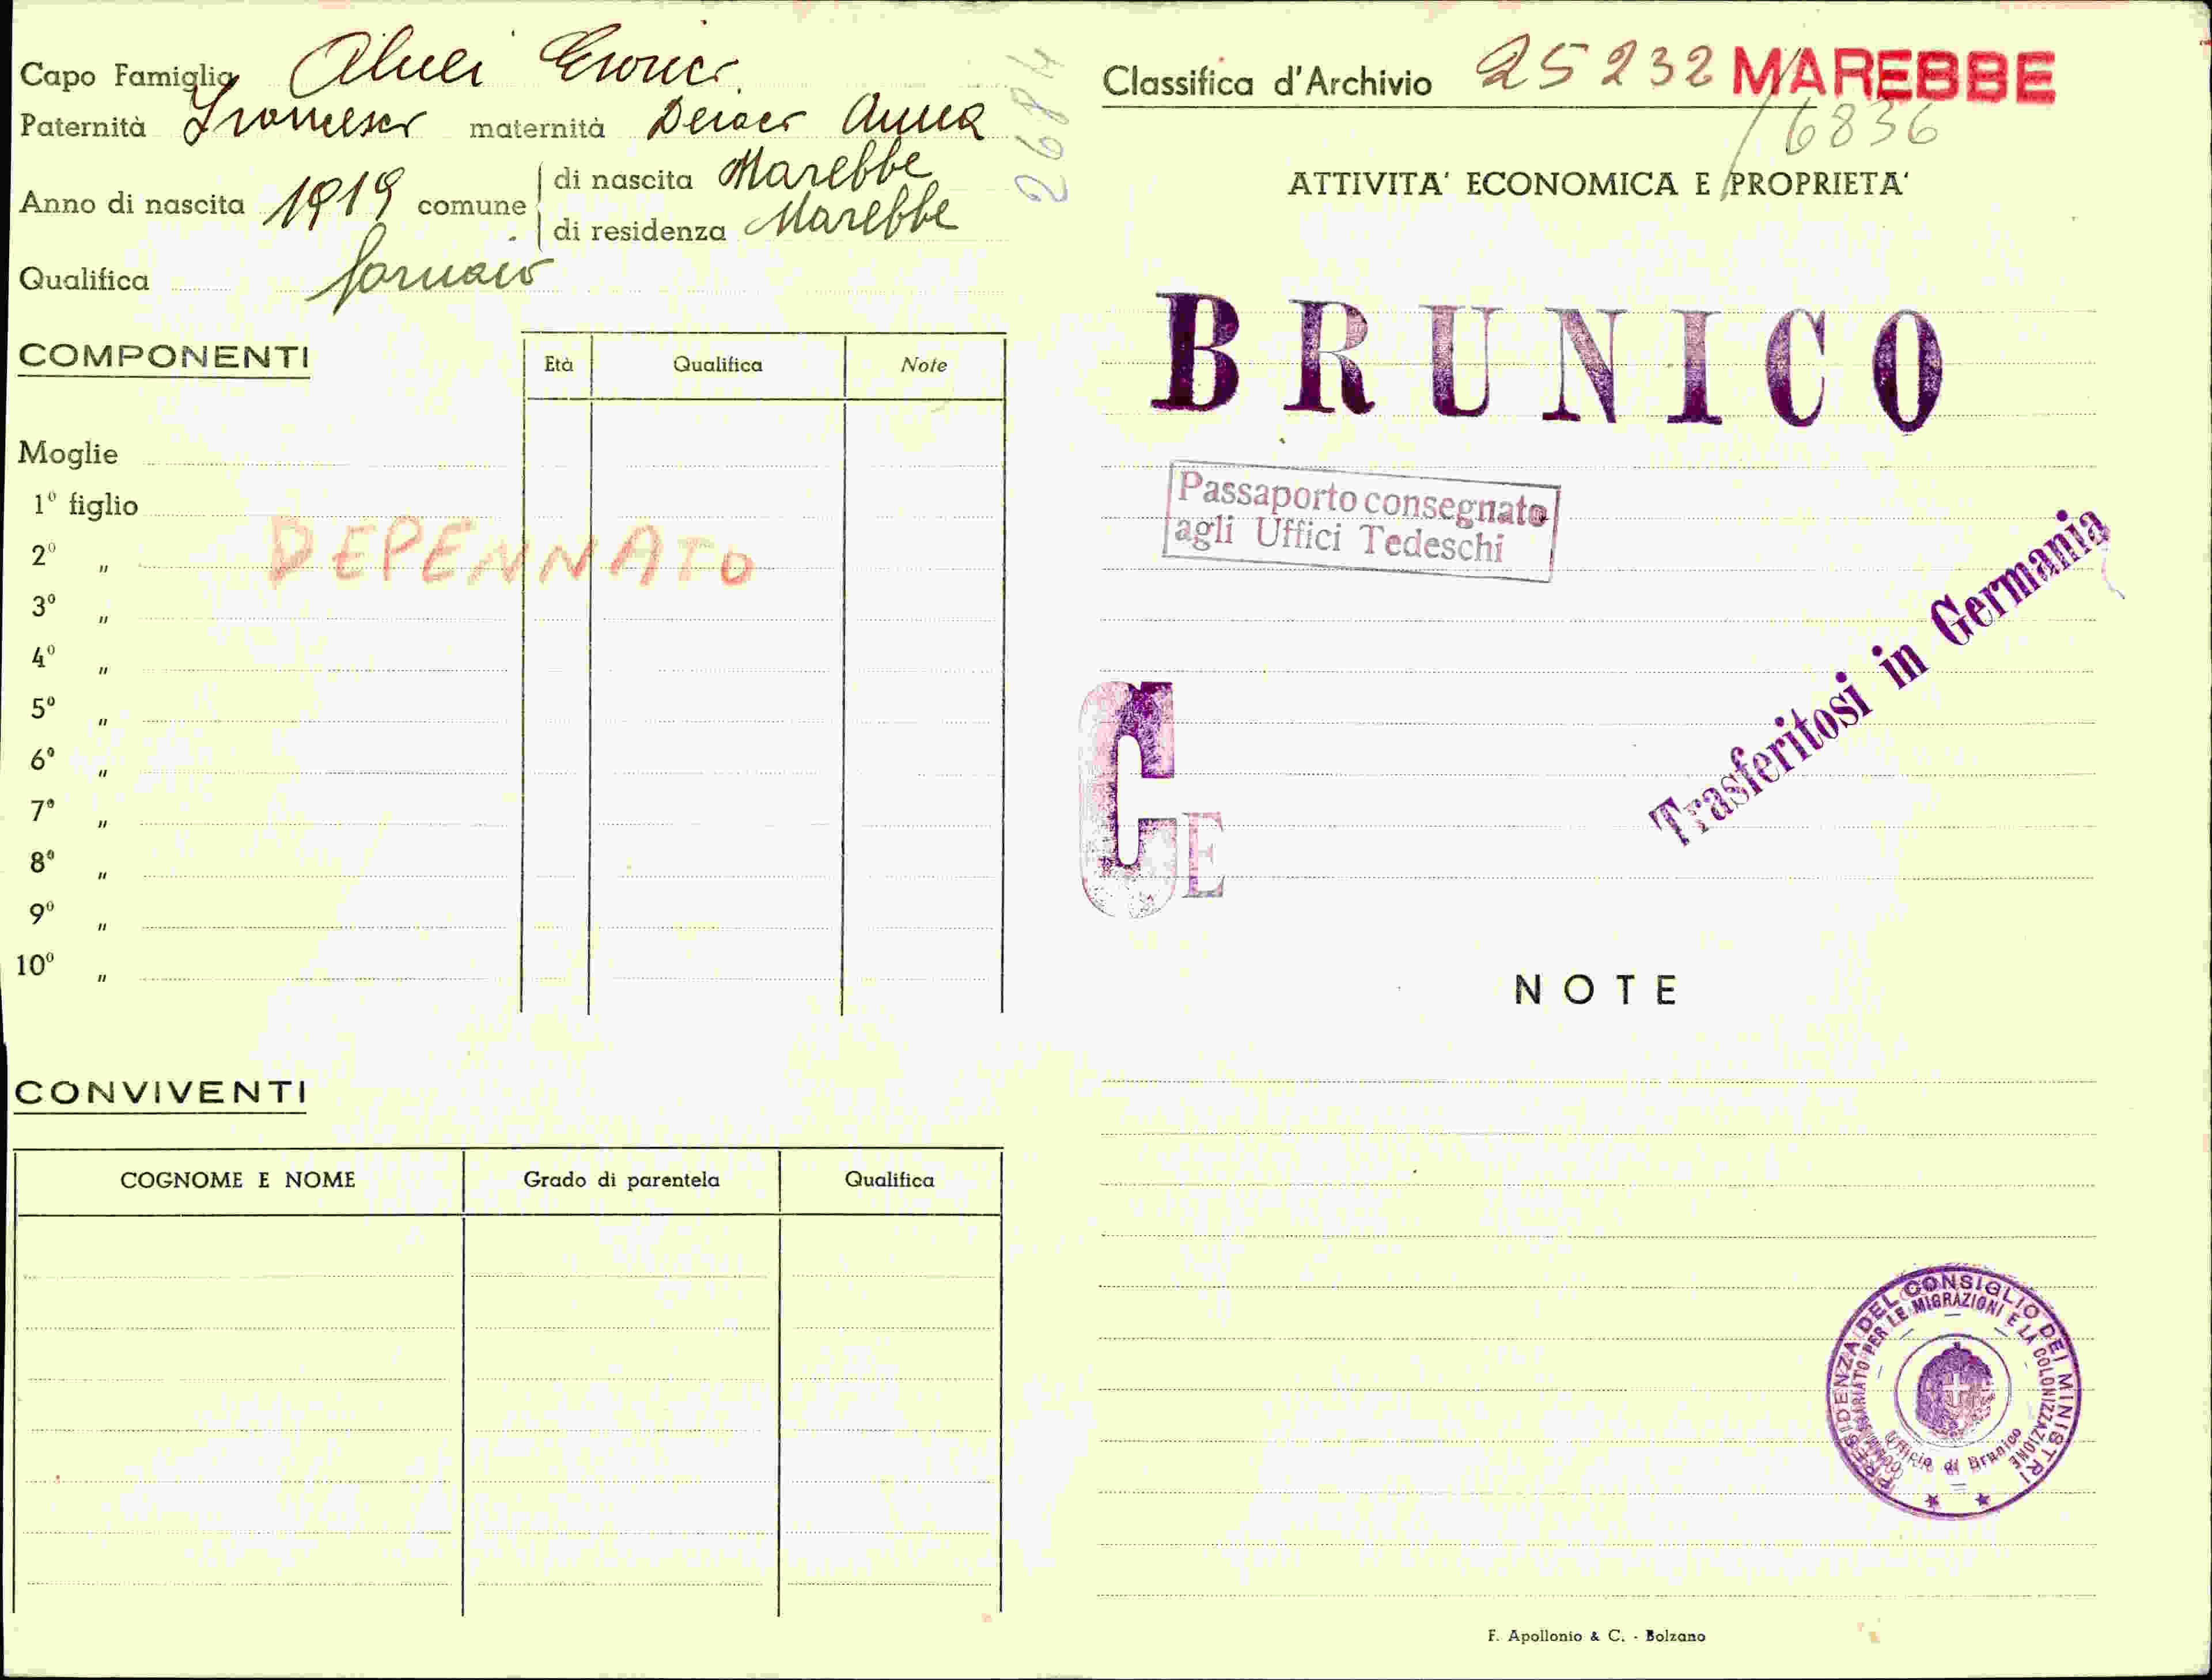 Capo Famiglia
Paternità Francesco maternità Anna
Anno di nascita 1919 comune di nascita Marebbe
di residenza Marebbe
Qualifica fornaio
2684
COMPONENTI Età Qualifica Note
Moglie
1º figlio
2º "
3º "
4º "
5º "
6º "
7º "
8º "
9º "
10º "
DEPENNATO
CONVIVENTI
COGNOME E NOME Grado di parentela Qualifica
Classifica d'Archivio 25232 MAREBBE
/6836
ATTIVITA' ECONOMICA E PROPRIETA'
BRUNICO
Passaporto consegnato
agli Uffici Tedeschi
Trasferitosi in Germania
C E
NOTE
PRESIDENZA DEL CONSIGLIO DEI MINISTRI
COMMISSARIATO PER LE MIGRAZIONI E LA COLONIZZAZIONE
Ufficio di Brunico
F. Apollonio & C. - Bolzano